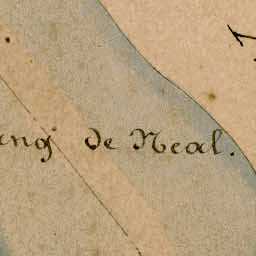 ang de Neal.